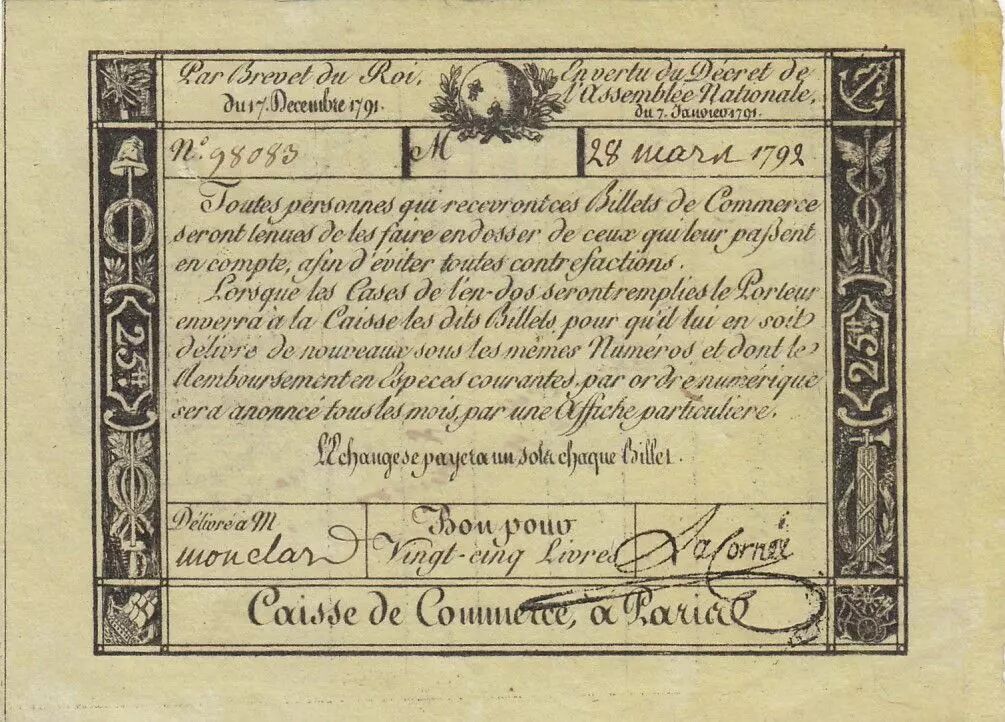 Par Brevet du Roi,
du 17. Decembre 1791.
En vertu du Décret de
l'Assemblée Nationale,
du 7. Janvier 1791.
N.° 98083
M
28 mars 1792
Toutes personnes qui recevront ces Billets de Commerce
seront tenues de les faire endosser de ceux qui leur paſsent
en compte, afin d'éviter toutes contrefactions.
Lorsque les Cases de l'en-dos seront remplies le Porteur
enverra à la Caisse les dits Billets, pour qu'il lui en soit
délivré de nouveaux sous les mêmes Numéros et dont le
Remboursement en Especes courantes, par ordre numérique
sera anoncé tous les mois, par une Affiche particuliere.
L'Echange se payera un sol chaque Billet.
25ₜₜ
25ₜₜ
Délivré à M
monclar
Bon pour
Vingt-cinq Livres
La Cornée
Caisse de Commerce, à Paris